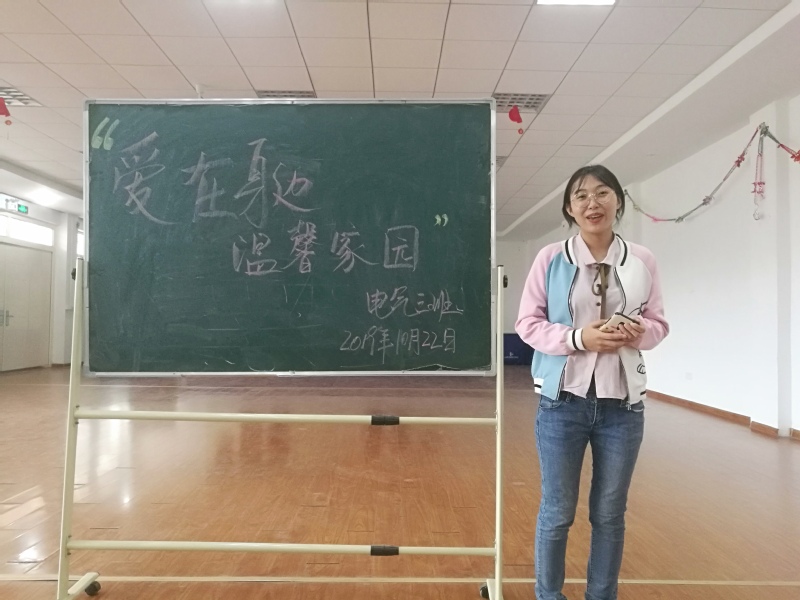 “爱在身边
温馨家园”
电气三班
2019年10月22日